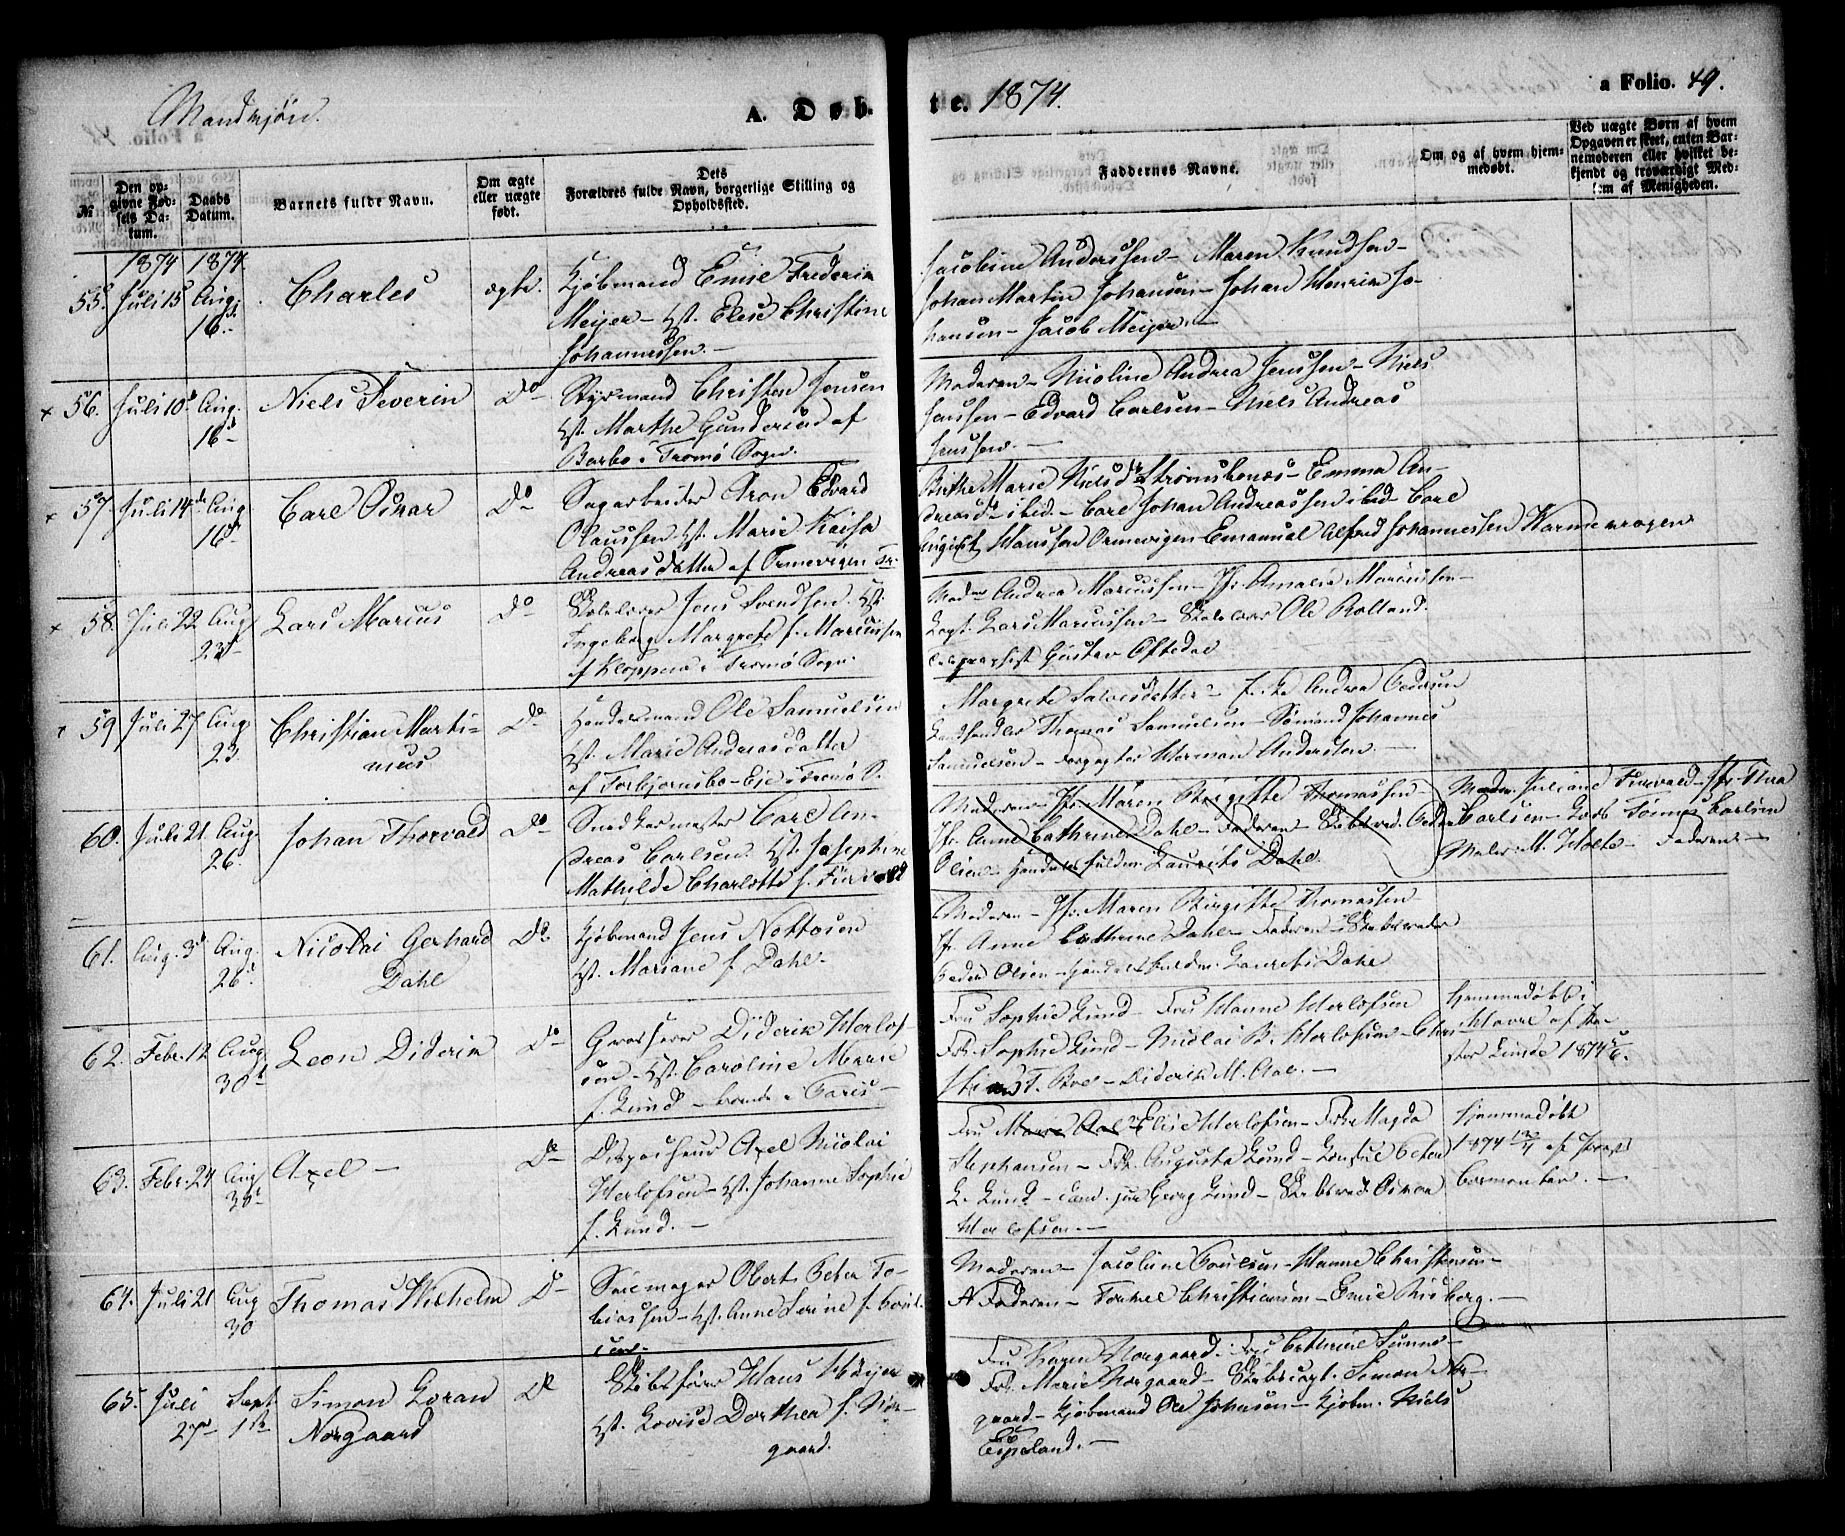 Mandkjøn.
A. Døbte. 1874.
a Folio. 49.
№
Den opgivne Fødsels Datum.
Daabs Datum.
Barnets fulde Navn.
Om ægte eller uægte født.
Dets Forældres fulde Navn, borgerlige Stilling og Opholdssted.
Faddernes Navne.
Om og af hvem hjemmedøbt.
Ved uægte Børn af hvem Opgaven er skeet, enten Barnemoderen eller hvilket bekjendt og troværdigt Medlem af Menigheden.
1874 1874.
55. Juli 15 Aug. 16d Charles ægte.
Kjøbmand Emil Frederik
Meyer - Hst. Elise Christine
Johannessen. -
Jacobine Anderssen - Maren Knudsen -
Johan Martin Johansen - Johan Henrik Jo-
hansen - Jacob Meyer. -
x 56. Juli 10d Aug. 16d Niels Severin Do
Styrmand Christen Jensen
Hst. Marthe Gundersd af
Barbo i Tromø Sogn.
Moderen - Nicoline Andrea Jenssen - Niels
Jenssen - Edvard Carlsen - Niels Andreas
Jenssen. -
x 57 Juli 14de Aug. 16d Carl Oskar Do
Sagarbeider Aron Edvard
Olaussen Hst. Marie Kaisa
Andreasdatter af Ormevigen Tr.
Birthe Marie Nielsd. Strømsbenes - Emma An-
dreasd. ibid. - Carl Johan Andreassen ibid - Carl
August Maussen Ormevigen Emanuel Alfred Johannessen Karmenrogen
x 58. Juli 22 Aug 23d Lars Marius Do
Skolelærer Jens Svendsen. Hst.
Ingeborg Margrete f. Marcussen
af Kloppene i Tromø Sogn.
Mad. Andrea Marcussen - Jfr Amalie Marcussen -
Capt. Lars Marcussen - Skolelærer Ole Rolland.
Telegraphist Gustav Oftedal
59 Juli 27 Aug 23. Christian Marti-
nius Do
Handelsmand Ole Samuelsen
Hst. Marie Andreasdatter
af Torbjørnsbo-Eje i Tromø S.
Margrete Salvesdatter - Andrea Pedersen
Landhandler Thomas Samuelsen - Sømand Johannes
Samuelsen - Forpagter Herman Andersen. -
60. Juli 21 Aug. 26. Johan Thorvald Do
Snedkermester Carl An-
dreas Carlsen. Hst. Josephine
Mathilde Charlotte f. Fürvald
Moderen - Jfr. Maren Birgitte Thomassen
Jfr. Anne Cathrine Dahl - Faderen - Skibsred. Peder
Olsen - Handelsfuldm. Laurits Dahl.
Madm. Juliane Fürvald - Jfr. Thea
Carlsen - Tønnes Carlsen
Maler M. Holte - Faderen. -
61. Aug. 3d Aug. 26d Nicolai Gerhard
Dahl Do
Kjøbmand Jens Nottosen
Hst. Mariane f. Dahl -
Moderen - Jfr. Maren Birgitte Thomassen
Jfr. Anne Cathrine Dahl - Faderen - Skibsreder
Peder Olsen - Handelsfuldm. Laurits Dahl
62. Febr. 12 Aug. 30d Leon Diderik Do
Grosserer Diderik Herlof-
sen - Hst. Caroline Marie
f. Lund - boende i Paris -
Fru Sophie Lund - Fru Hanne Herlofsen
Frk. Sophie Lund - Nicolai B. Herlofsen - Chri-
stian T. Boe - Diderik M. Aal. -
Hjemmedøbt i
Havre af Pa-
stor Lunde 1874 5/6.
63. Febr. 24 Aug 30d Axel - Do
Dispacheur Axel Nicolai
Herlofsen - Hst. Johanne Sophie
f. Lund. -
Fru Marie Aal - Elise Herlofsen - Frk. Magda
Stephansen - Frk. Augusta Lund - Consul Peter
L. Lund - Cand. jur Georg Lund - Skibsred. Oscar
Herlofsen. -
Hjemmedøbt
1874 12/4 af Provst
Bormonter. -
64. Juli 21 Aug 30 Thomas Wilhelm Do
Seilmager Obert Peter To-
biassen - Hst. Anne Serine f. Poul-
sen.
Moderen - Jacobine Poulsen - Hanne Christensen -
Faderen - Torkel Christiansen - Emil Risberg. -
65. Juli 27de Sept. 1ste Simon Goran
Norgaard Do
Skibsfører Hans Høyer
Hst. Lovise Dorthea f. Nor-
gaard.
Fru Karen Norgaard. Fru Cathrine
Frk. Marie Norgaard - Skibscapt. Simon Nor-
gaard - Kjøbmand Ole Johnsen - Kjøbm. Niels
Espeland. -